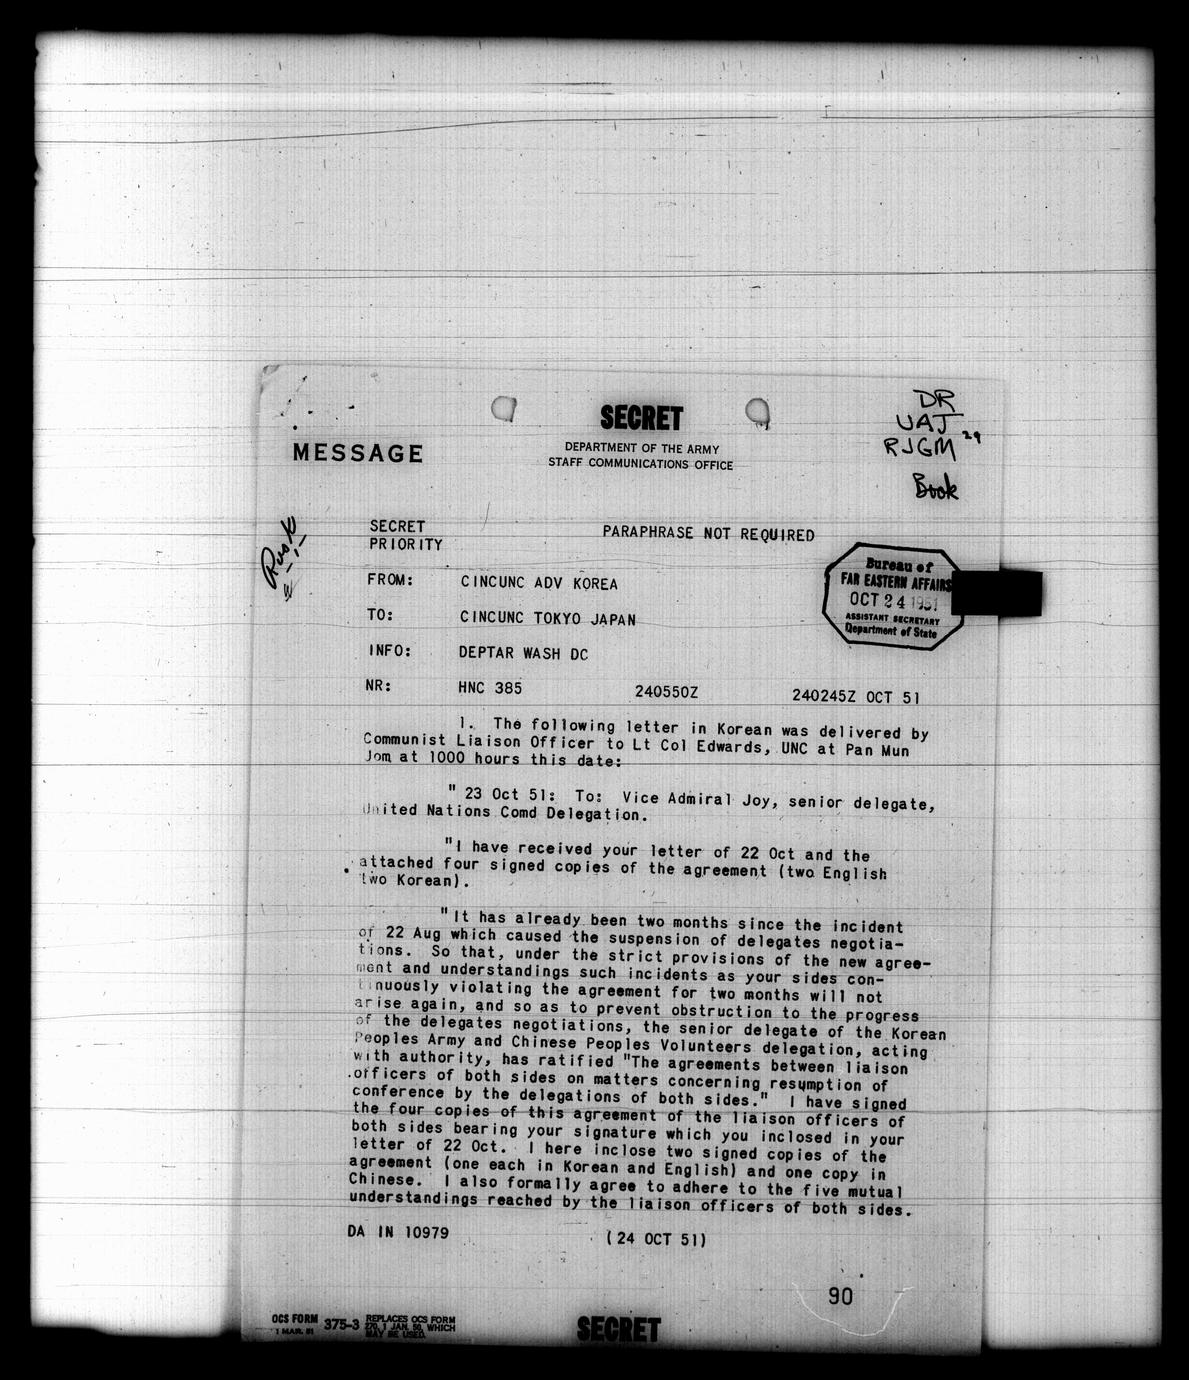 SECRET
DEPARTMENT OF THE ARMY
STAFF COMMUNICATIONS OFFICE
MESSAGE
DR
UAJ
RJGM 29
Book
Rusk
SECRET
PRIORITY
PARAPHRASE NOT REQUIRED
Bureau of
FAR EASTERN AFFAIRS
OCT 24 1951
ASSISTANT SECRETARY
Department of State
FROM: CINCUNC ADV KOREA
TO: CINCUNC TOKYO JAPAN
INFO: DEPTAR WASH DC
NR: HNC 385 240550Z 240245Z OCT 51
1. The following letter in Korean was delivered by
Communist Liaison Officer to Lt Col Edwards, UNC at Pan Mun
Jom at 1000 hours this date:
" 23 Oct 51: To: Vice Admiral Joy, senior delegate,
United Nations Comd Delegation.
"I have received your letter of 22 Oct and the
attached four signed copies of the agreement (two English
two Korean).
"It has already been two months since the incident
of 22 Aug which caused the suspension of delegates negotia-
tions. So that, under the strict provisions of the new agree-
ment and understandings such incidents as your sides con-
tinuously violating the agreement for two months will not
arise again, and so as to prevent obstruction to the progress
of the delegates negotiations, the senior delegate of the Korean
Peoples Army and Chinese Peoples Volunteers delegation, acting
with authority, has ratified "The agreements between liaison
officers of both sides on matters concerning resumption of
conference by the delegations of both sides." I have signed
the four copies of this agreement of the liaison officers of
both sides bearing your signature which you inclosed in your
letter of 22 Oct. I here inclose two signed copies of the
agreement (one each in Korean and English) and one copy in
Chinese. I also formally agree to adhere to the five mutual
understandings reached by the liaison officers of both sides.
DA IN 10979 (24 OCT 51)
90
OCS FORM 375-3 REPLACES OCS FORM
1 MAR. 51 270, 1 JAN. 50, WHICH
MAY BE USED.
SECRET